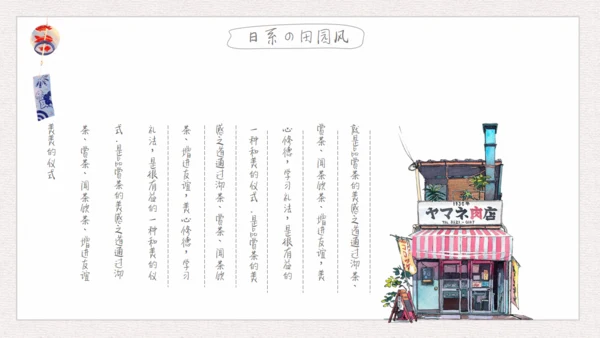 日系の田园风
就是品赏茶的美感之道通过沏茶、
赏茶、闻茶饮茶、增进友谊，美
心修德，学习礼法，是很有益的
一种和美的仪式.是品赏茶的美
感之道通过沏茶、赏茶、闻茶饮
茶、增进友谊，美心修德，学习
礼法，是很有益的一种和美的仪
式.是品赏茶的美感之道通过沏
茶、赏茶、闻茶饮茶、增进友谊
美美的仪式
ヤマネ肉店